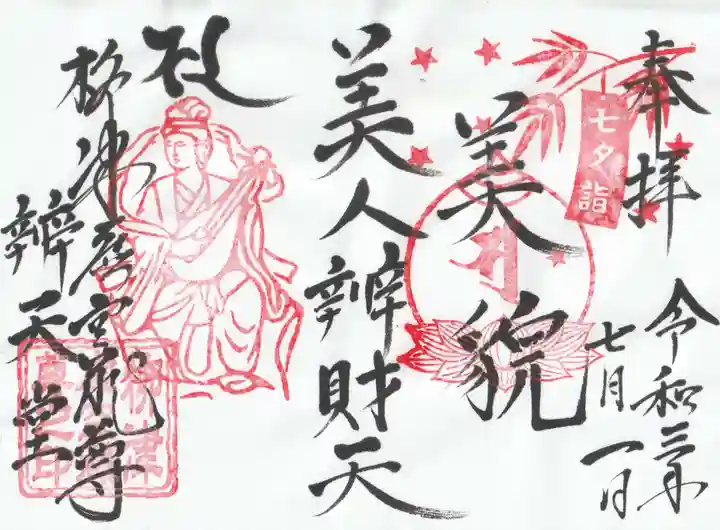 奉拝
七夕詣
令和三年
七月一日
美貌
美人辨財天
柳津虚空蔵尊
辨天堂